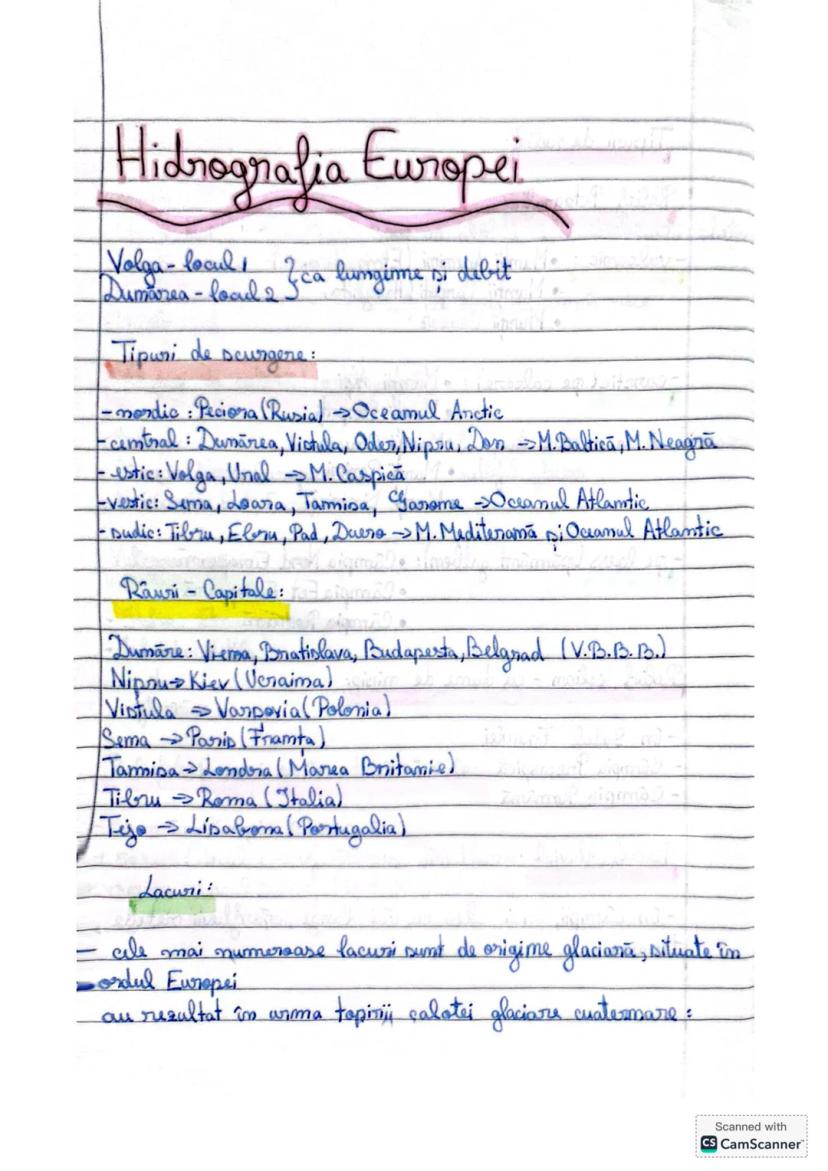 Hidrografia Europei
Volga - locul 1 } ca lungime și debit
Dunărea - locul 2
Tipuri de scurgere:
- nordic: Peciora (Rusia) → Oceanul Arctic
- central: Dunărea, Vistula, Oder, Nipru, Don → M. Baltică, M. Neagră
- estic: Volga, Ural → M. Caspică
- vestic: Sena, Loara, Tamisa, Garone → Oceanul Atlantic
- sudic: Tibru, Ebru, Pad, Duero → M. Mediterană și Oceanul Atlantic
Râuri - Capitale:
Dunăre: Viena, Bratislava, Budapesta, Belgrad (V.B.B.B.)
Nipru → Kiev (Ucraina)
Vistula → Varșovia (Polonia)
Sena → Paris (Franța)
Tamisa → Londra (Marea Britanie)
Tibru → Roma (Italia)
Tejo → Lisabona (Portugalia)
Lacuri:
- cele mai numeroase lacuri sunt de origine glaciară, situate în
ordul Europei
au rezultat în urma topirii calotei glaciare cuaternare:
Scanned with
CS CamScanner